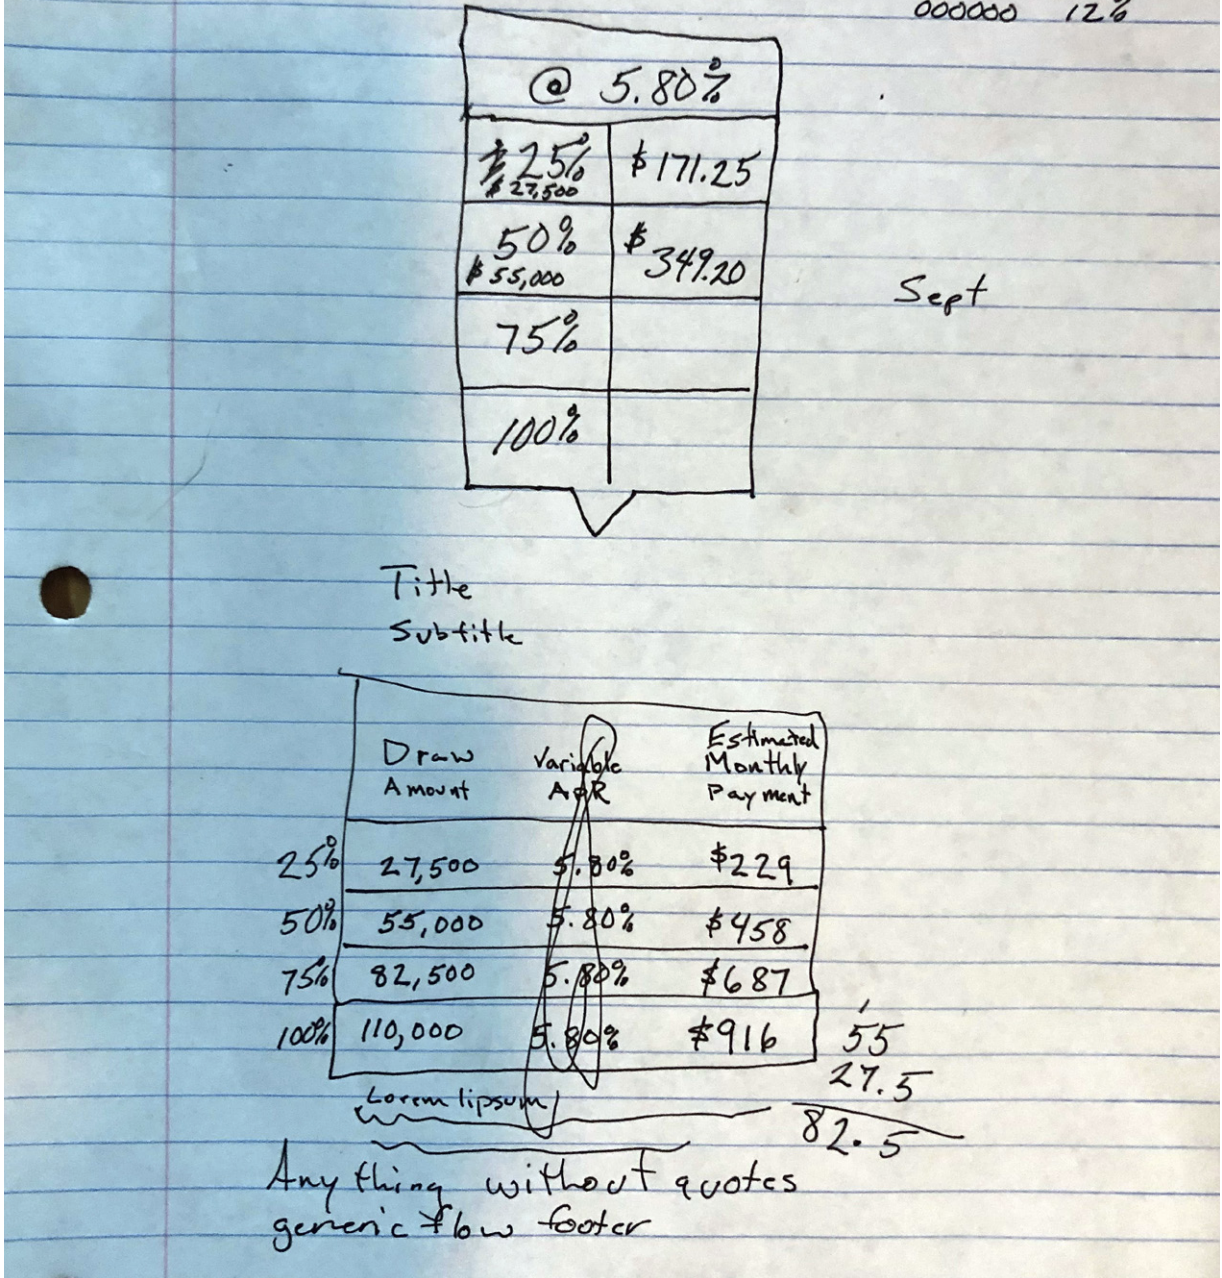 000000 12%
@ 5.80%
25% $171.25
$27,500
50% $349.20
$55,000
Sept
75%
100%
Title
Subtitle
Draw Amount Variable APR Estimated Monthly Payment
25% 27,500 5.80% $229
50% 55,000 5.80% $458
75% 82,500 5.80% $687
100% 110,000 5.80% $916
1
55
27.5
82.5
Lorem lipsum
Anything without quotes
generic flow footer